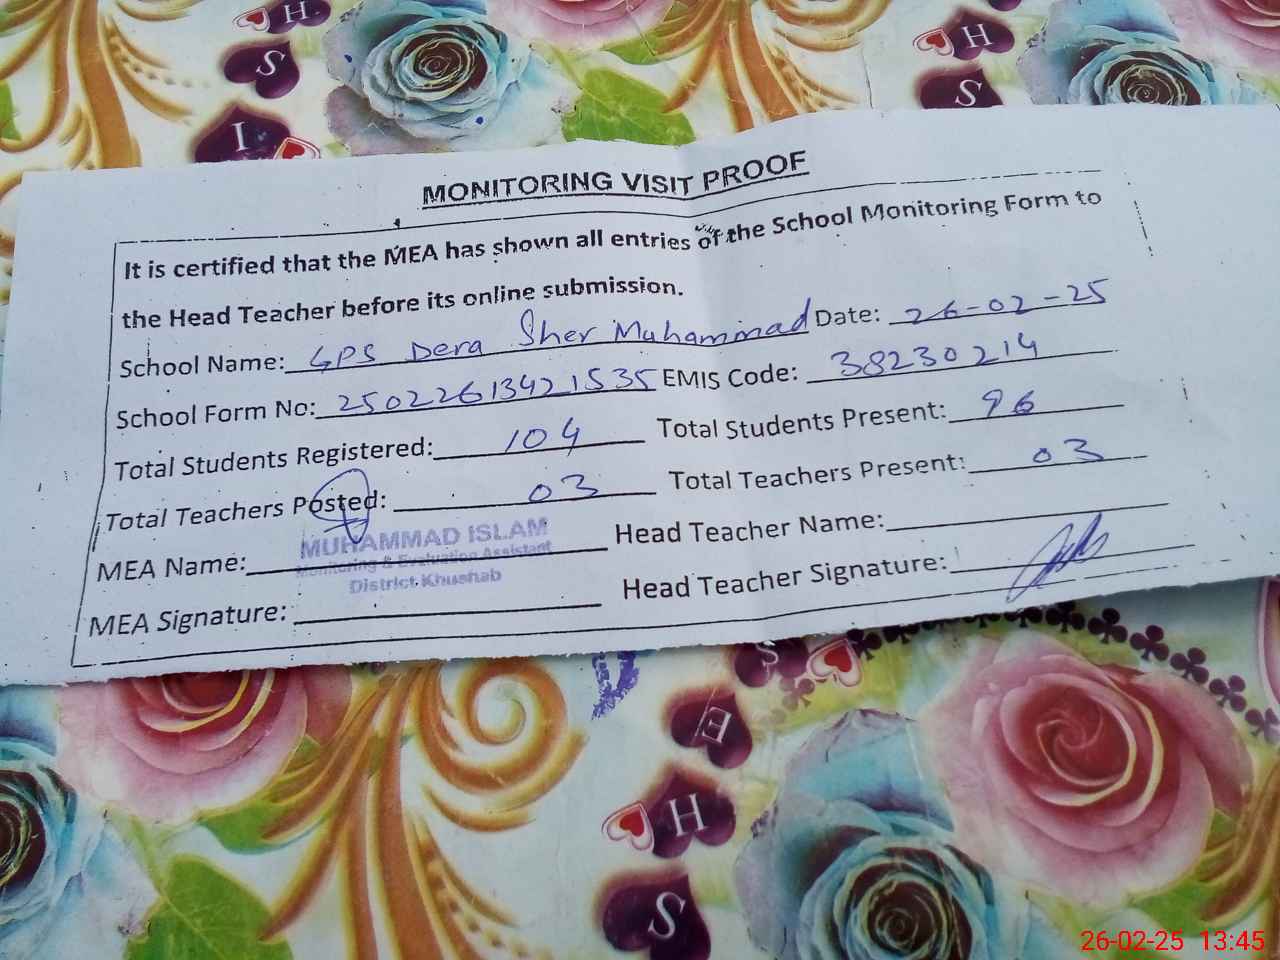 MONITORING VISIT PROOF
It is certified that the MEA has shown all entries of the School Monitoring Form to
the Head Teacher before its online submission.
School Name: GPS Dera Sher Muhammad Date: 26-02-25
School Form No: 25022613421535 EMIS Code: 38230214
Total Students Registered: 104 Total Students Present: 96
Total Teachers Posted: 03 Total Teachers Present: 03
MEA Name: MUHAMMAD ISLAM Head Teacher Name:
Monitoring & Evaluation Assistant
District Khushab
MEA Signature: Head Teacher Signature:
H
S
I
H
S
S
E
H
S
26-02-25 13:45